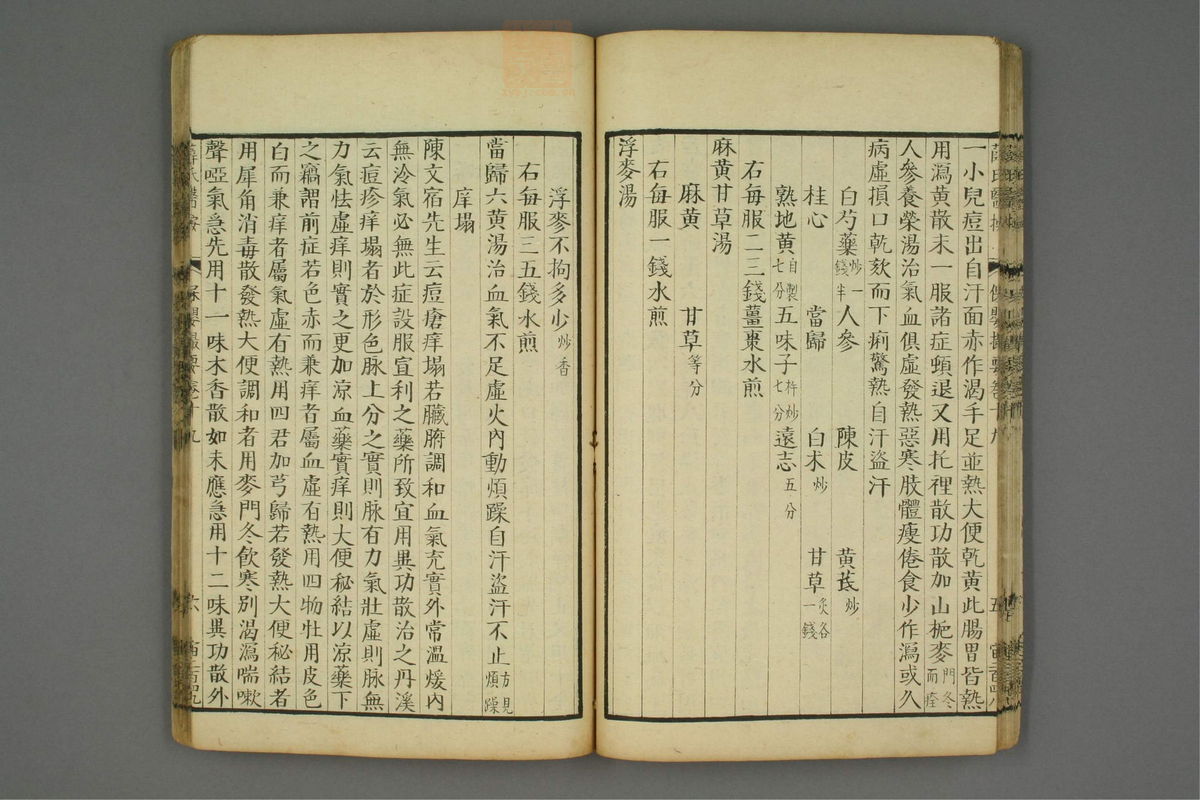 一小兒痘出自汗面赤作渴手足並熱大便乾黃此腸胃皆熱
用瀉黃散末一服諸症頓退又用托裡散功散加山梔麥門冬而痊
人參養榮湯治氣血俱虛發熱惡寒肢體瘦倦食少作瀉或久
病虛損口乾欬而下痢驚熱自汗盜汗
白芍藥炒一錢半 人參 陳皮 黃芪炒
桂心 當歸 白术炒 甘草炙各一錢
熟地黃自製七分 五味子杵炒七分 遠志五分
右每服二三錢薑棗水煎
麻黃甘草湯
麻黃 甘草等分
右每服一錢水煎
浮麥湯
浮麥不拘多少炒香
右每服三五錢水煎
當歸六黃湯治血氣不足虛火內動煩躁自汗盜汗不止方見煩躁
庠塌
陳文宿先生云痘瘡痒塌若臟腑調和血氣充實外常溫煖內
無冷氣必無此症設服宣利之藥所致宜用異功散治之丹溪
云痘疹痒塌者於形色脉上分之實則脉有力氣壯虛則脉無
力氣怯虛痒則實之更加涼血藥實痒則大便秘結以涼藥下
之竊謂前症若色赤而兼痒者屬血虛有熱用四物牡用皮色
白而兼痒者屬氣虛有熱用四君加芎歸若發熱大便秘結者
用犀角消毒散發熱大便調和者用麥門冬飲寒別渴瀉喘嗽
聲啞氣急先用十一味木香散如未應急用十二味異功散外
薛氏醫按 保嬰撮要卷十九 六